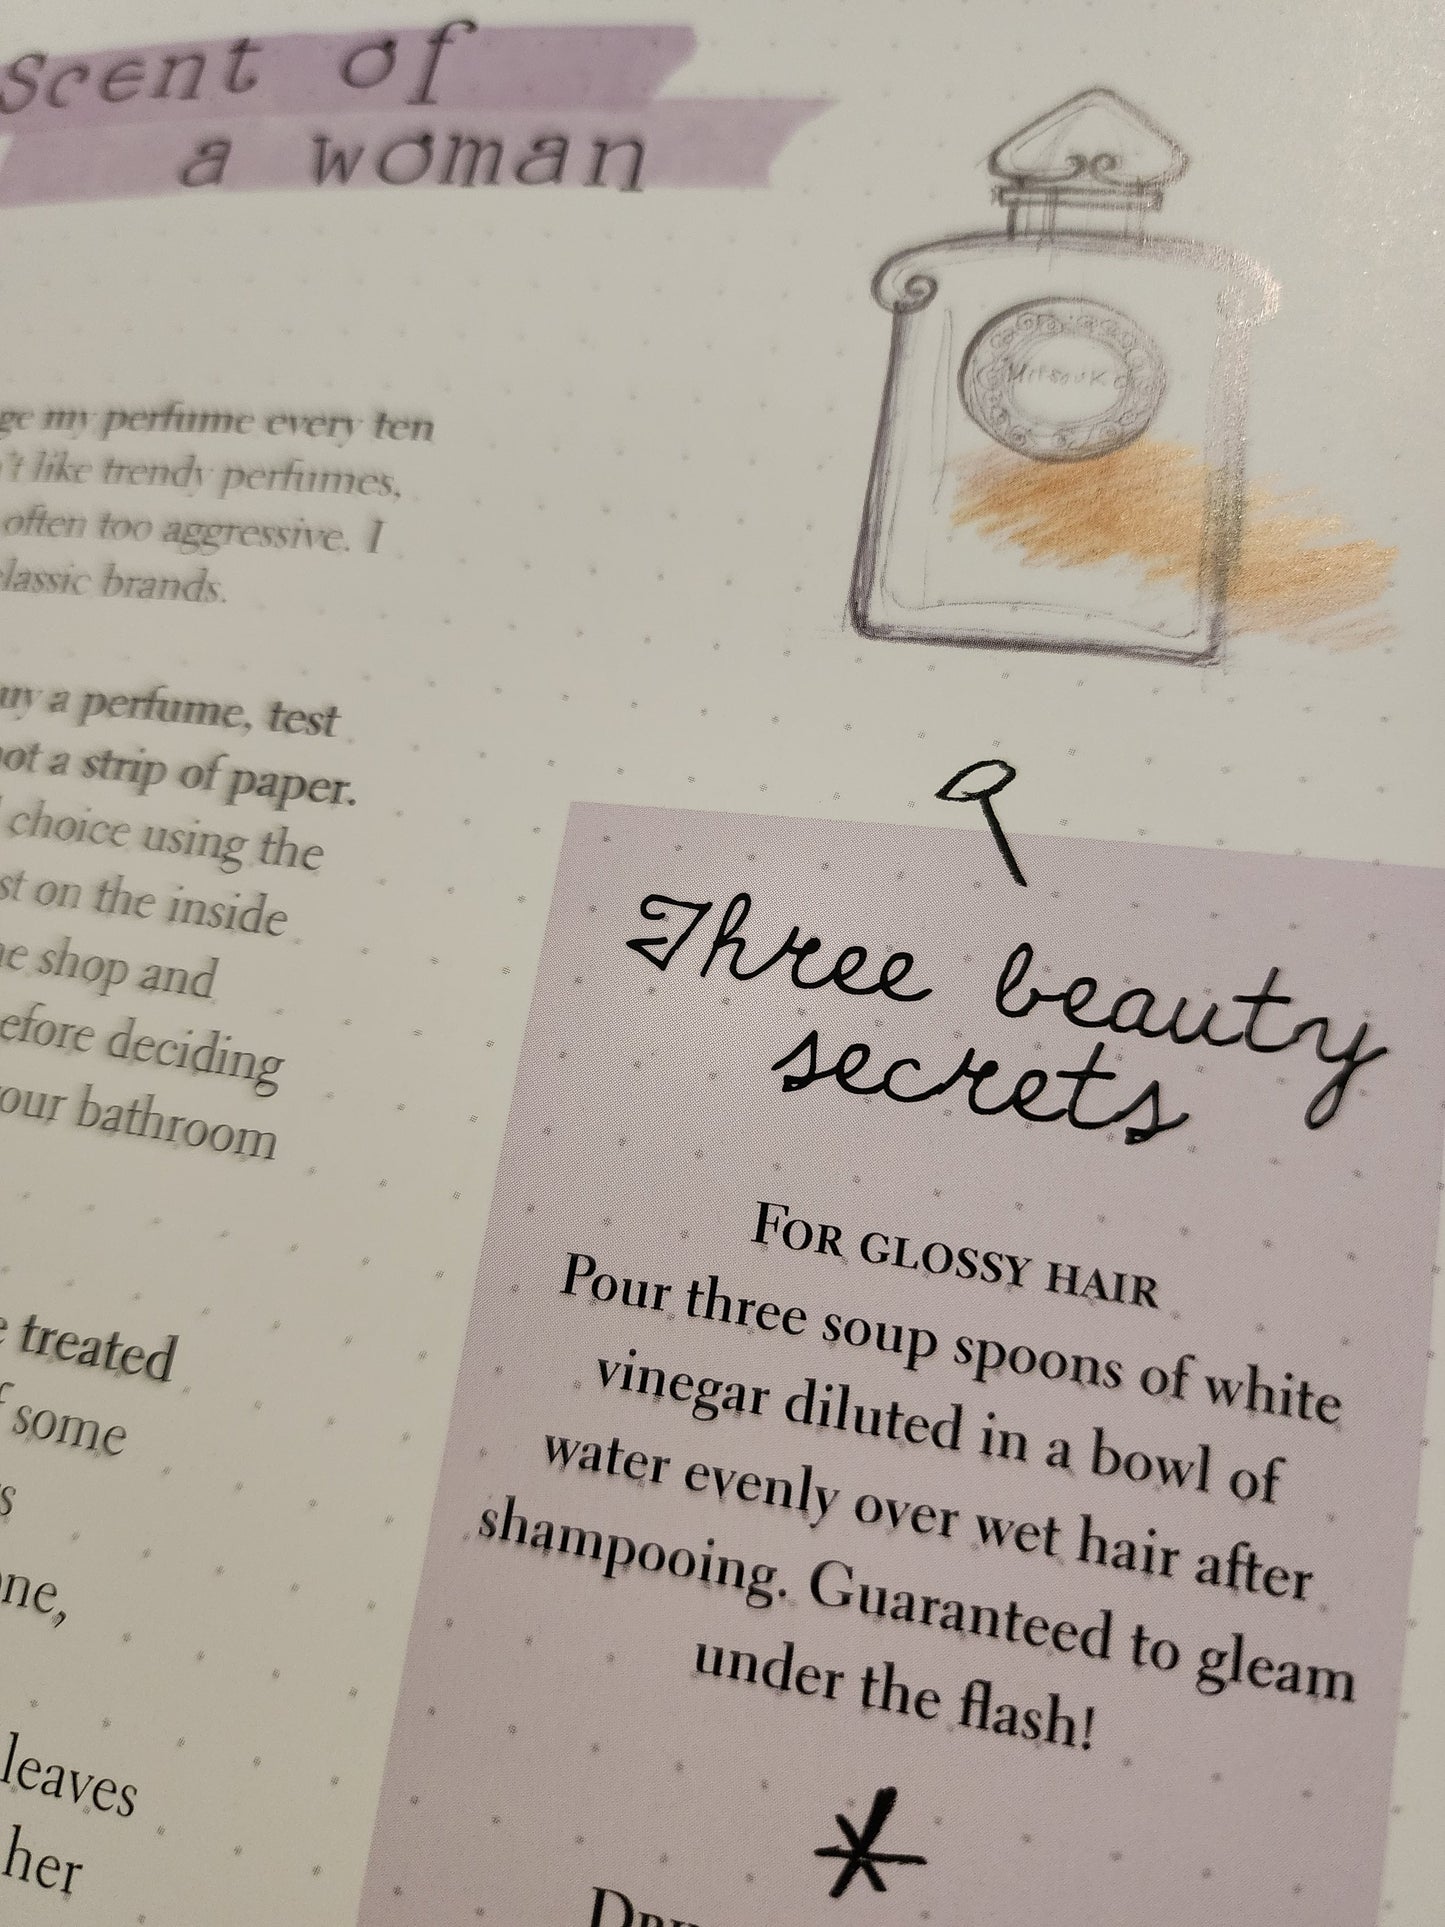 Scent of
a woman
MITSOUKO
my perfume every ten
like trendy perfumes,
often too aggressive. I
brands.
a perfume, test
a strip of paper.
choice using the
on the inside
shop and
deciding
bathroom
treated
some
leaves
her
Three beauty
secrets
FOR GLOSSY HAIR
Pour three soup spoons of white
vinegar diluted in a bowl of
water evenly over wet hair after
shampooing. Guaranteed to gleam
under the flash!